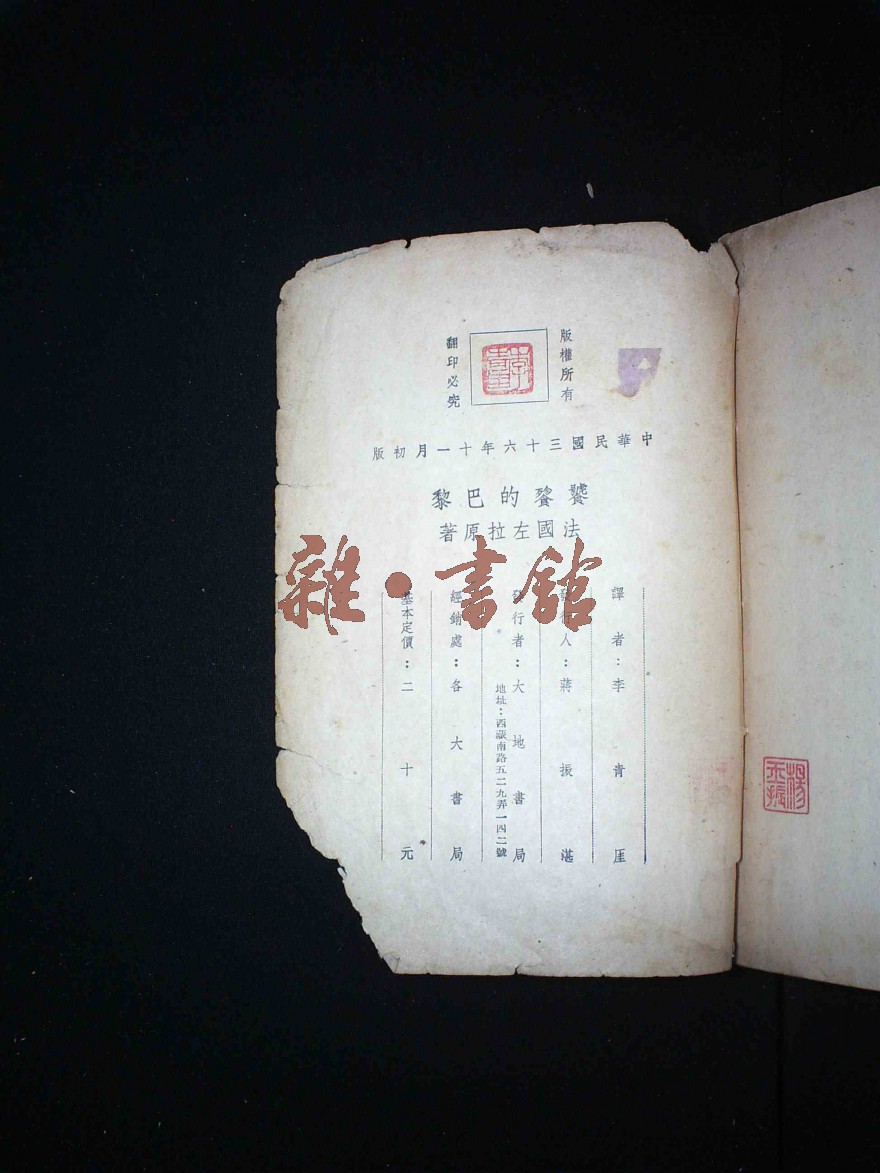 版權所有
翻印必究
中華民國三十六年十一月初版
饕餮的巴黎
法國左拉原著
譯者：李青厓
發行人：蔣振湛
發行者：大地書局
地址：西藏南路五二九弄一四二號
經銷處：各大書局
基本定價：二十元
雜·書館